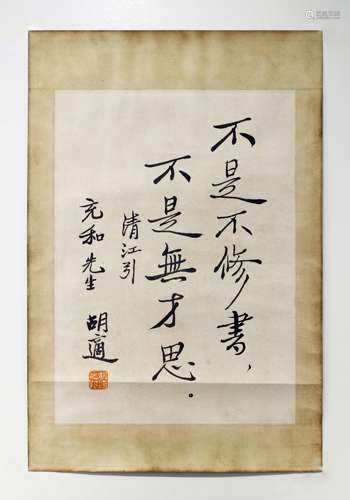 不是不修書，
不是無才思．
清江引
充和先生
胡適